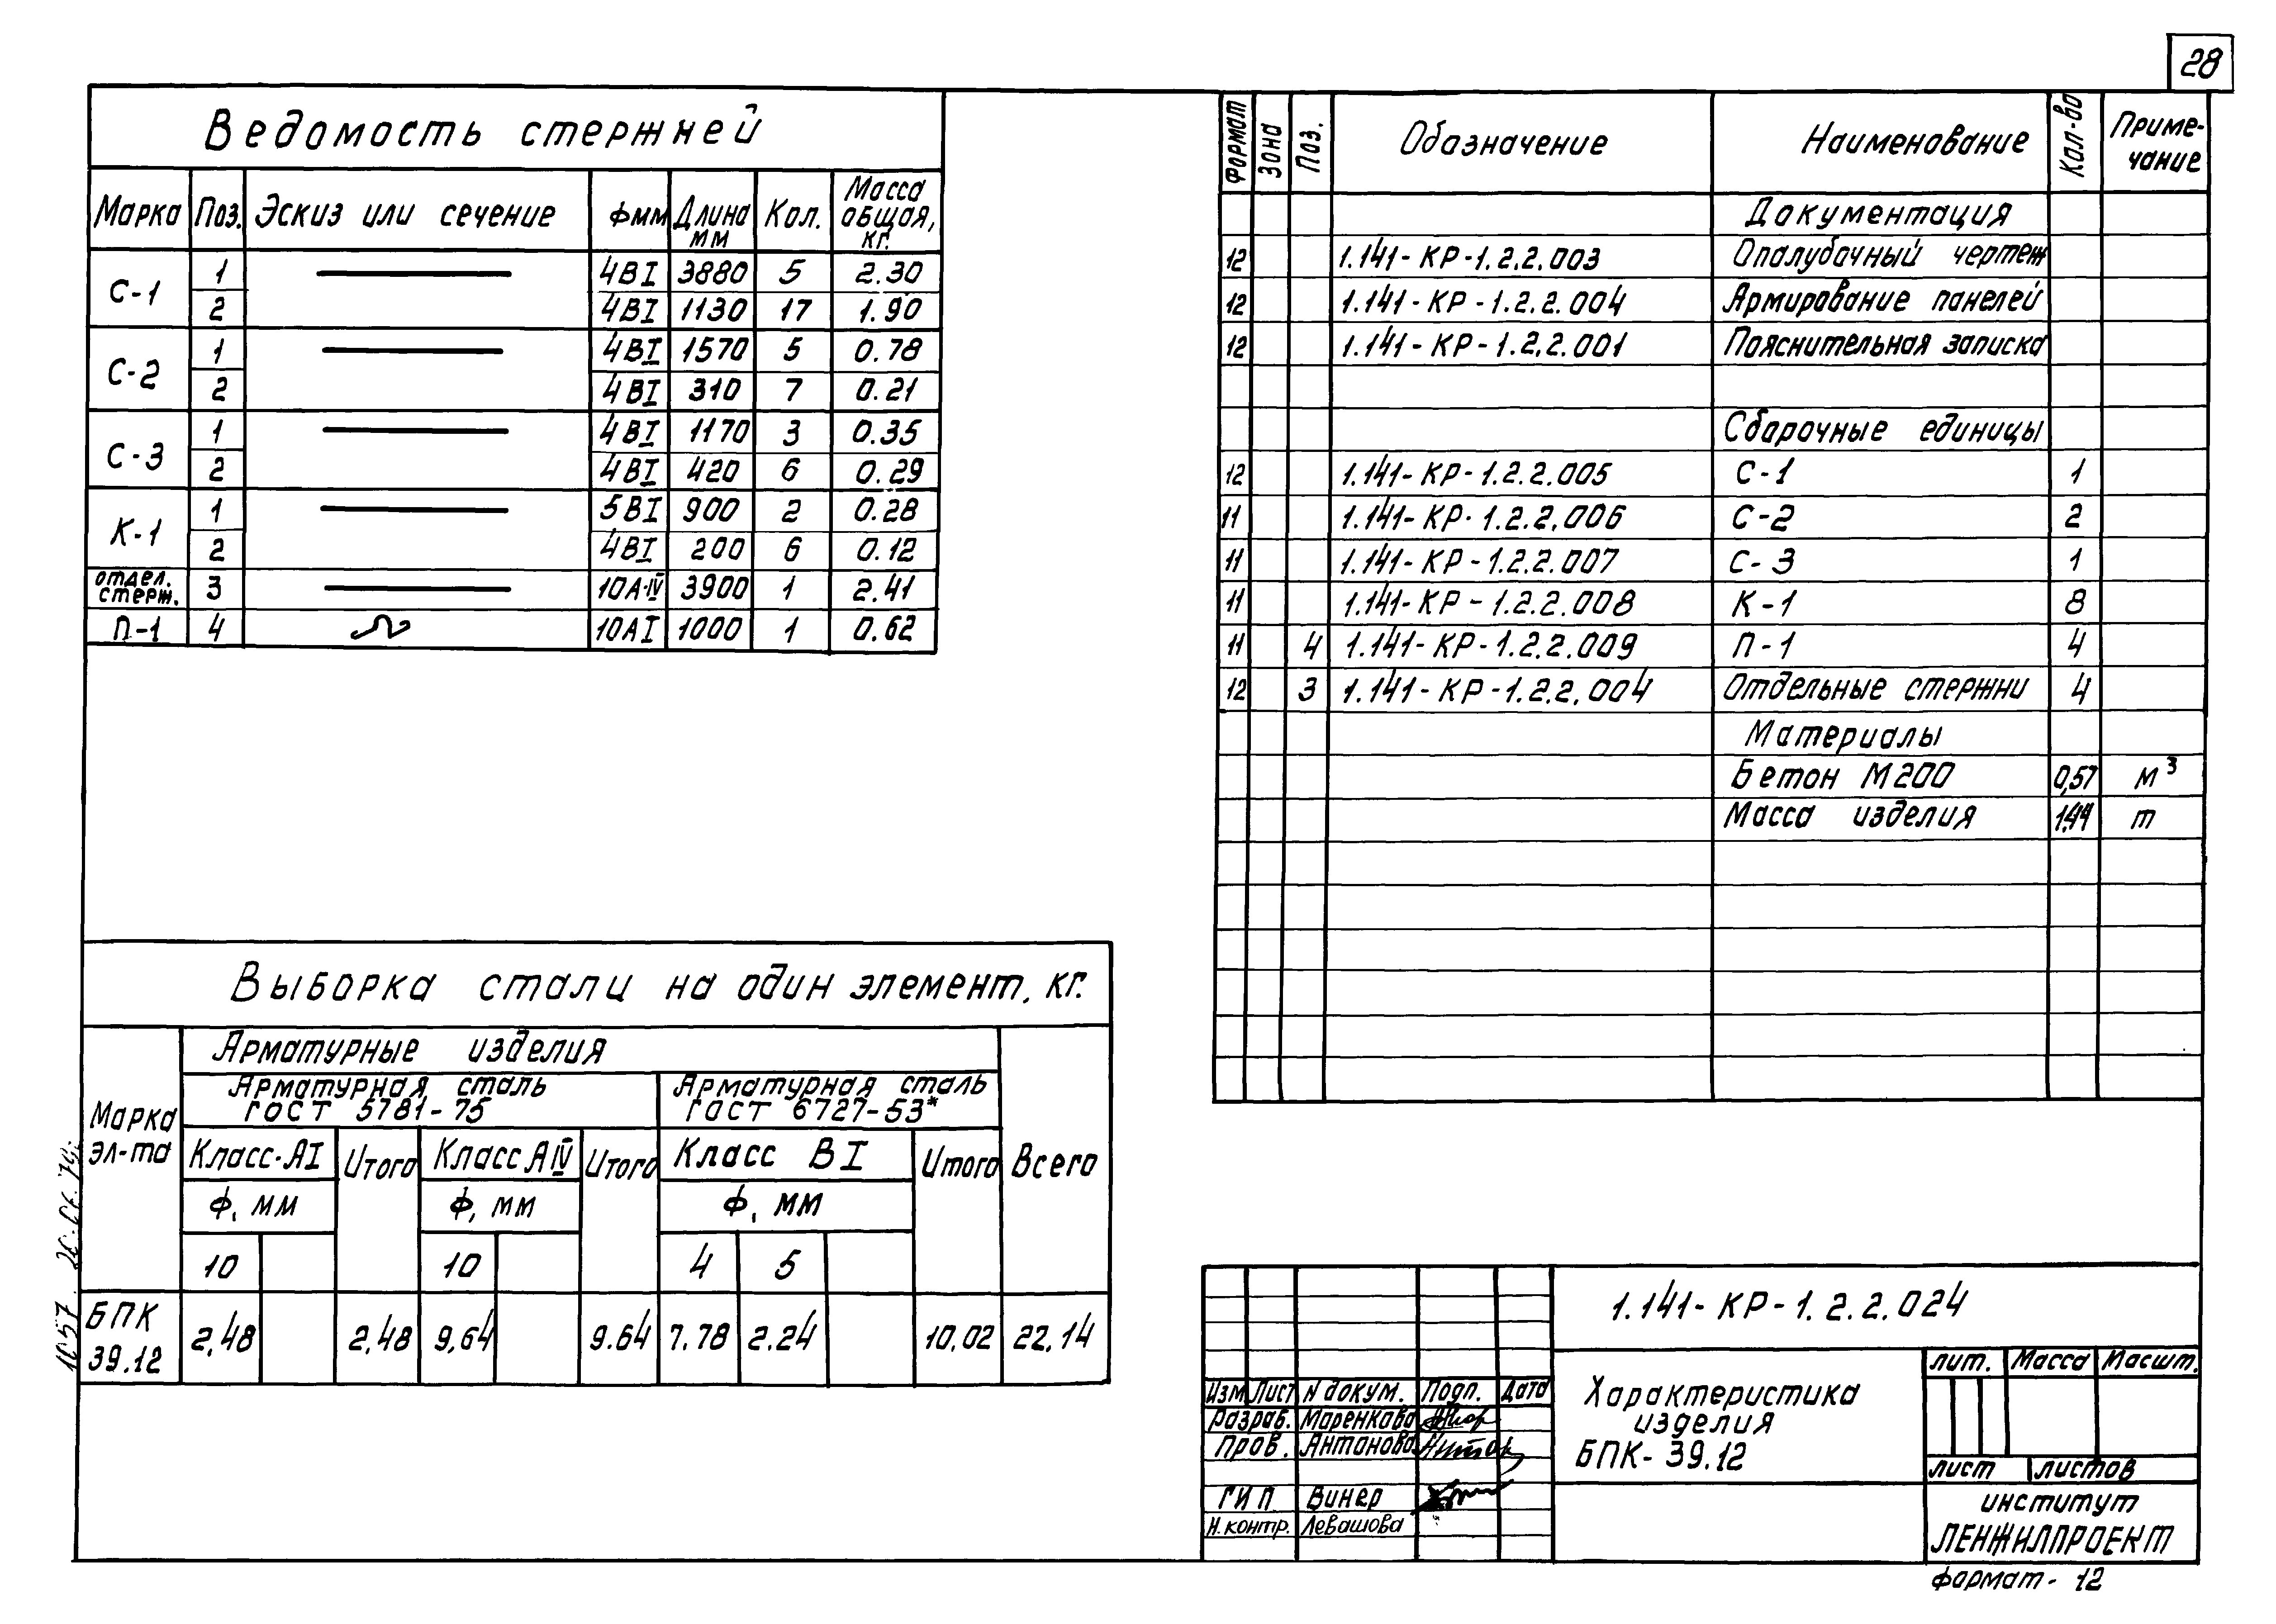 28
Ведомость стержней
Марка Поз. Эскиз или сечение Фмм Длина мм Кол. Масса общая, кг.
С-1 1 4ВI 3880 5 2.30
2 4ВI 1130 17 1.90
С-2 1 4ВI 1570 5 0.78
2 4ВI 310 7 0.21
С-3 1 4ВI 1170 3 0.35
2 4ВI 420 6 0.29
К-1 1 5ВI 900 2 0.28
2 4ВI 200 6 0.12
отдел. стерж. 3 10А-IV 3900 1 2.41
П-1 4 10АI 1000 1 0.62
Выборка стали на один элемент, кг.
Марка эл-та
Арматурные изделия
Арматурная сталь ГОСТ 5781-75
Арматурная сталь ГОСТ 6727-53*
Класс-АI Итого Класс АIV Итого Класс ВI Итого Всего
Ф, мм Ф, мм Ф, мм
10 10 4 5
БПК 39.12 2,48 2,48 9,64 9.64 7.78 2.24 10,02 22,14
Формат Зона Поз. Обозначение Наименование Кол-во Примечание
Документация
12 1.141-КР-1.2.2.003 Опалубочный чертеж
12 1.141-КР-1.2.2.004 Армирование панелей
12 1.141-КР-1.2.2.001 Пояснительная записка
Сборочные единицы
12 1.141-КР-1.2.2.005 С-1 1
11 1.141-КР-1.2.2.006 С-2 2
11 1.141-КР-1.2.2.007 С-3 1
11 1.141-КР-1.2.2.008 К-1 8
11 4 1.141-КР-1.2.2.009 П-1 4
12 3 1.141-КР-1.2.2.004 Отдельные стержни 4
Материалы
Бетон М200 0,57 м³
Масса изделия 1,44 т
1.141-КР-1.2.2.024
Изм Лист N докум. Подп. Дата
Разраб. Маренкова
Пров. Антонова
ГИП Винер
Н.контр. Левашова
Характеристика
изделия
БПК-39.12
лит. Масса Масшт.
лист листов
институт
ЛЕНЖИЛПРОЕКТ
Формат-12
1057